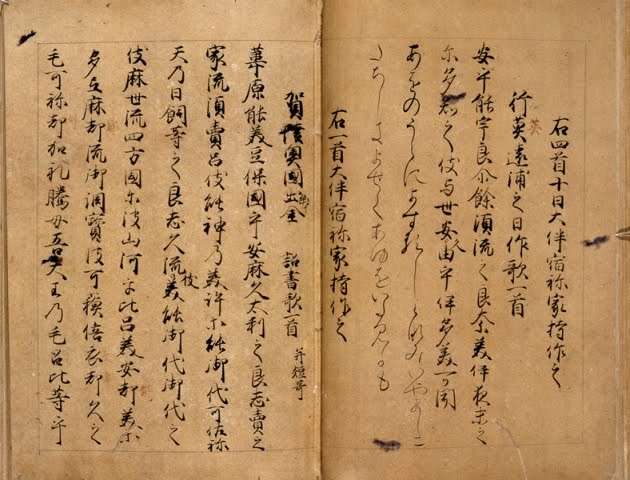 右四首十日大伴宿祢家持作之
行英遠浦之日作歌一首
安乎能宇良尓餘須流之良奈美伊夜末之
尓多知之伎与世久安由乎伊多美可聞
あをのうらによするしらなみいやましに
たちしきよせくあゆをいたみかも
右一首大伴宿祢家持作之
賀陸奥國出金 詔書歌一首 并短哥
葦原能美豆保國乎安麻久太利之良志賣之
家流須賣呂伎能神乃美許等能御代可佐祢
天乃日嗣等之良志久流伎美能御代御代之
伎麻世流四方國尓波山河乎比呂美安都美等
多弖麻都流御調寶波可蘇倍衣都久之
毛可祢都加礼騰母吾大王乃毛呂比等乎